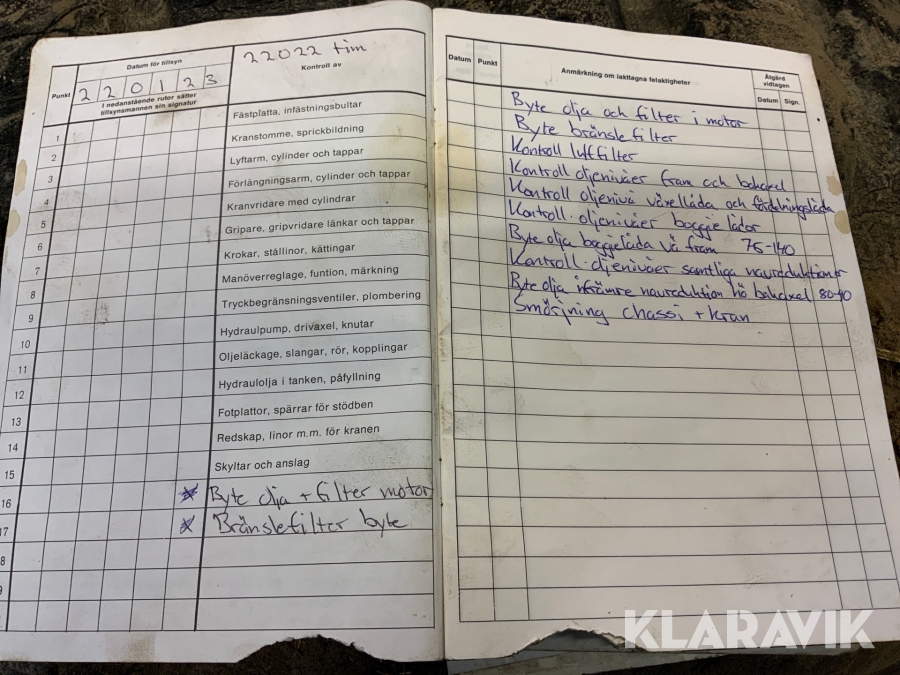 Datum för tillsyn
22022 tim
Punkt
2 2 0 1 2 3
Kontroll av
I nedanstående rutor sätter
tillsynsmannen sin signatur
Fästplatta, infästningsbultar
1
Kranstomme, sprickbildning
2
Lyftarm, cylinder och tappar
3
Förlängningsarm, cylinder och tappar
4
Kranvridare med cylindrar
5
Gripare, gripvridare länkar och tappar
6
Krokar, ställinor, kättingar
7
Manöverreglage, funtion, märkning
8
Tryckbegränsningsventiler, plombering
9
Hydraulpump, drivaxel, knutar
10
Oljeläckage, slangar, rör, kopplingar
11
Hydraulolja i tanken, påfyllning
12
Fotplattor, spärrar för stödben
13
Redskap, linor m.m. för kranen
14
Skyltar och anslag
15
Byte olja + filter motor
16
Bränslefilter byte
17
8
Datum Punkt
Anmärkning om iakttagna felaktigheter
Åtgärd
vidtagen
Datum Sign.
Byte olja och filter i motor
Byte bränsle filter
Kontroll luftfilter
Kontroll oljenivåer fram och bakaxel
Kontroll oljenivå växellåda och fördelningslåda
Kontroll oljenivåer boggie lådor
Byte olja boggielåda vä fram 75-140
Kontroll oljenivåer samtliga navreduktioner
Byte olja främre navreduktion hö bakaxel 80-90
Smörjning chassi + kran
KLARAVIK